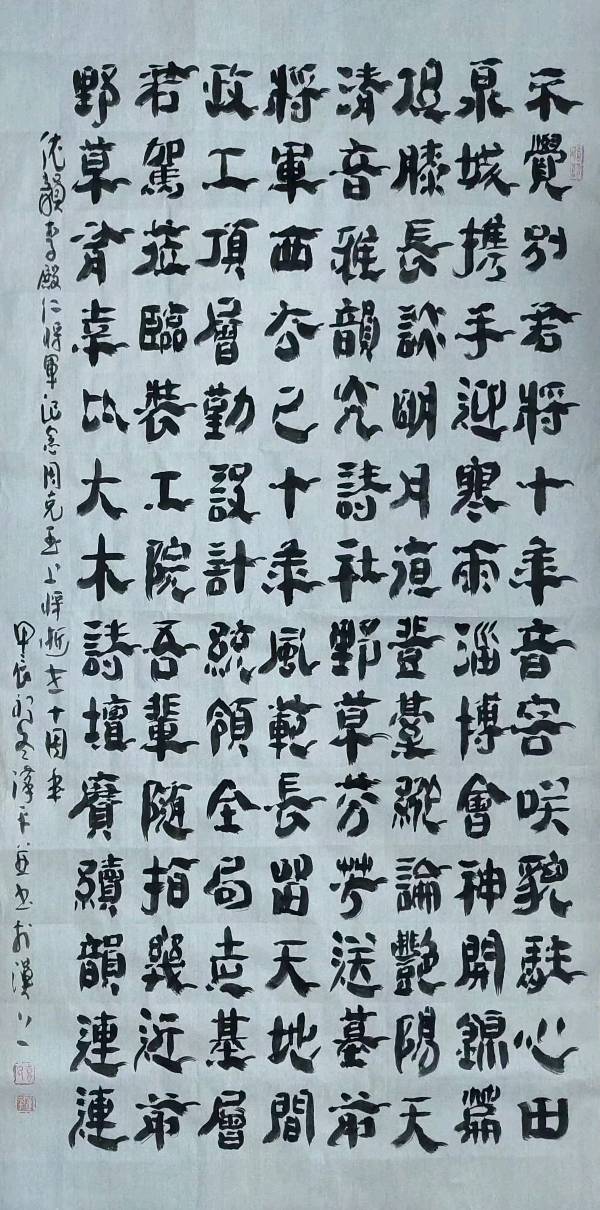 不覺別君將十年音容咲貌駐心田
泉城攜手迎寒雨淄博會神開錦篇
促膝長談明月登臺縱論艷陽天
清音雅韻光詩社野草芬芳送墓前
將軍西去已十年風範長留天地間
政工頂層勤設計統領全局志基層
若駕蒞臨裝工院吾輩隨拍幾近前
野草比大木詩壇賡續韻連連
依韻李殿仁將軍記念周克玉上將逝世十周年
甲辰初冬澤平並書於漢上